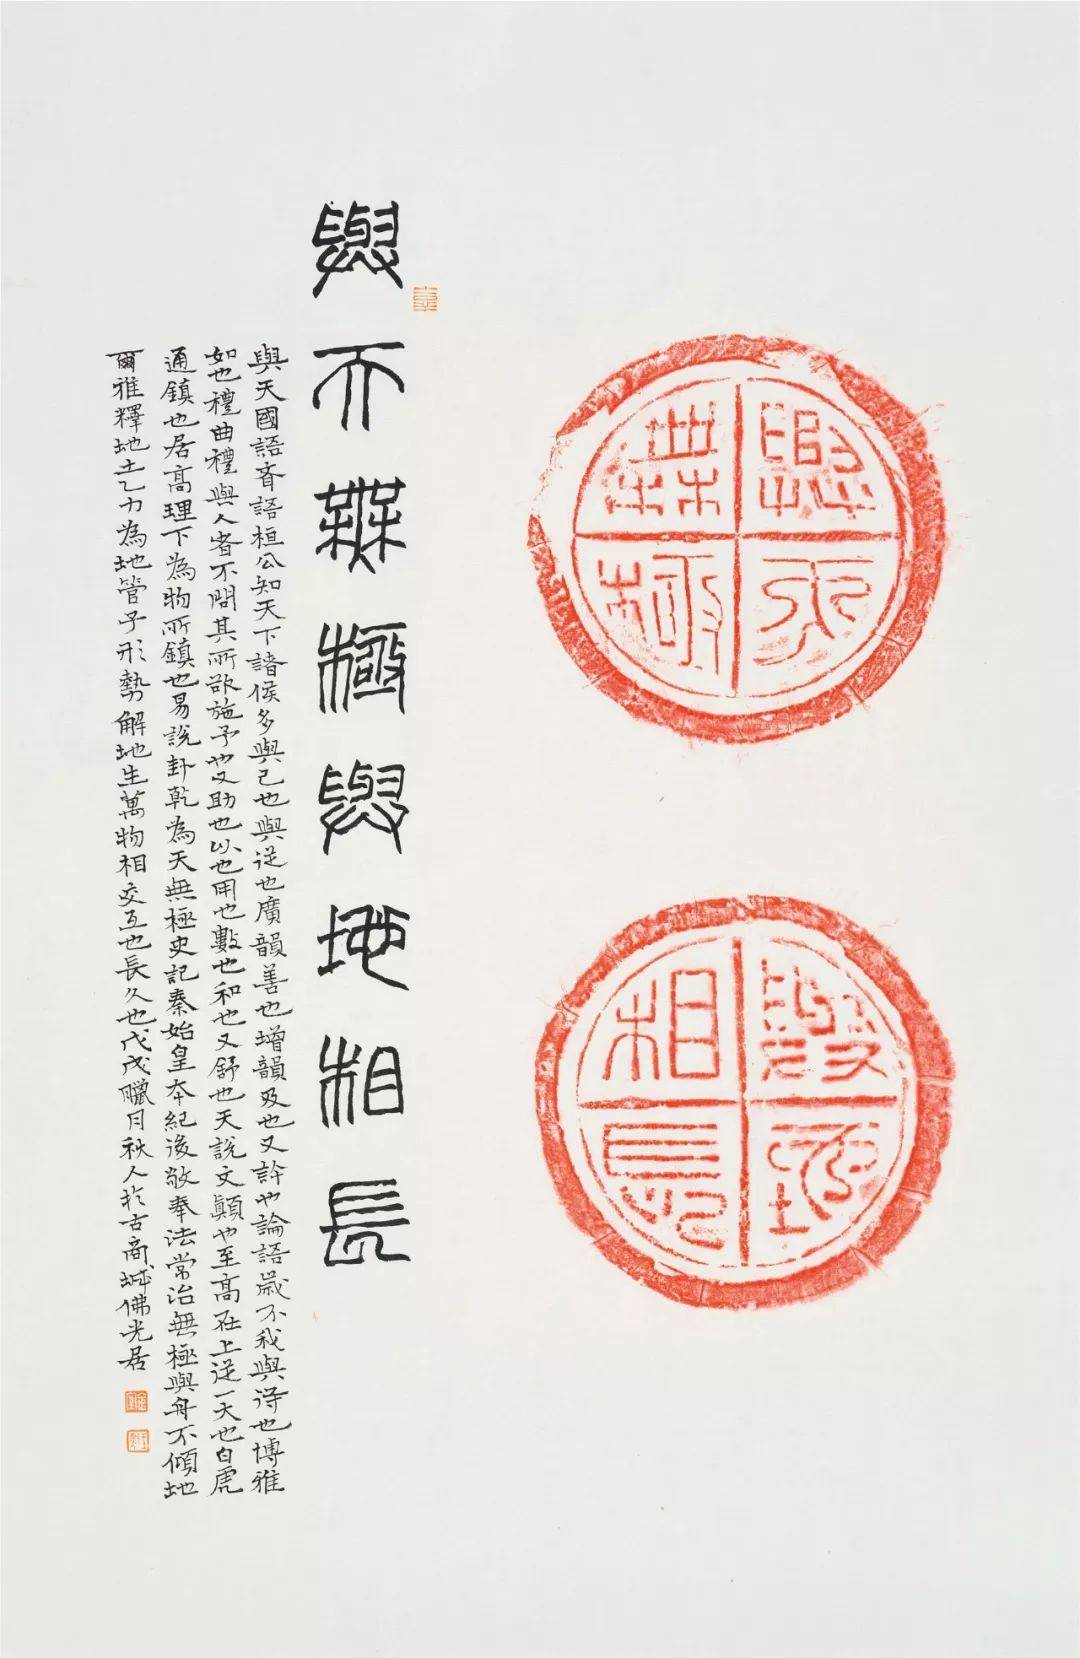 與天無極
與地相長
與天無極與地相長
與天國語齊語桓公知天下諸侯多與己也與從也廣韻善也增韻及也又許也論語歲不我與待也博雅
如也禮曲禮與人者不問其所欲施予也又助也以也用也數也和也又舒也天說文顛也至高在上從一大也白虎
通鎮也居高理下為物所鎮也易說卦乾為天無極史記秦始皇本紀後敬奉法常治無極與舟不傾地
爾雅釋地土乙力為地管子形勢解地生萬物相交互也長久也戊戌臘月秋人於古商城佛光居